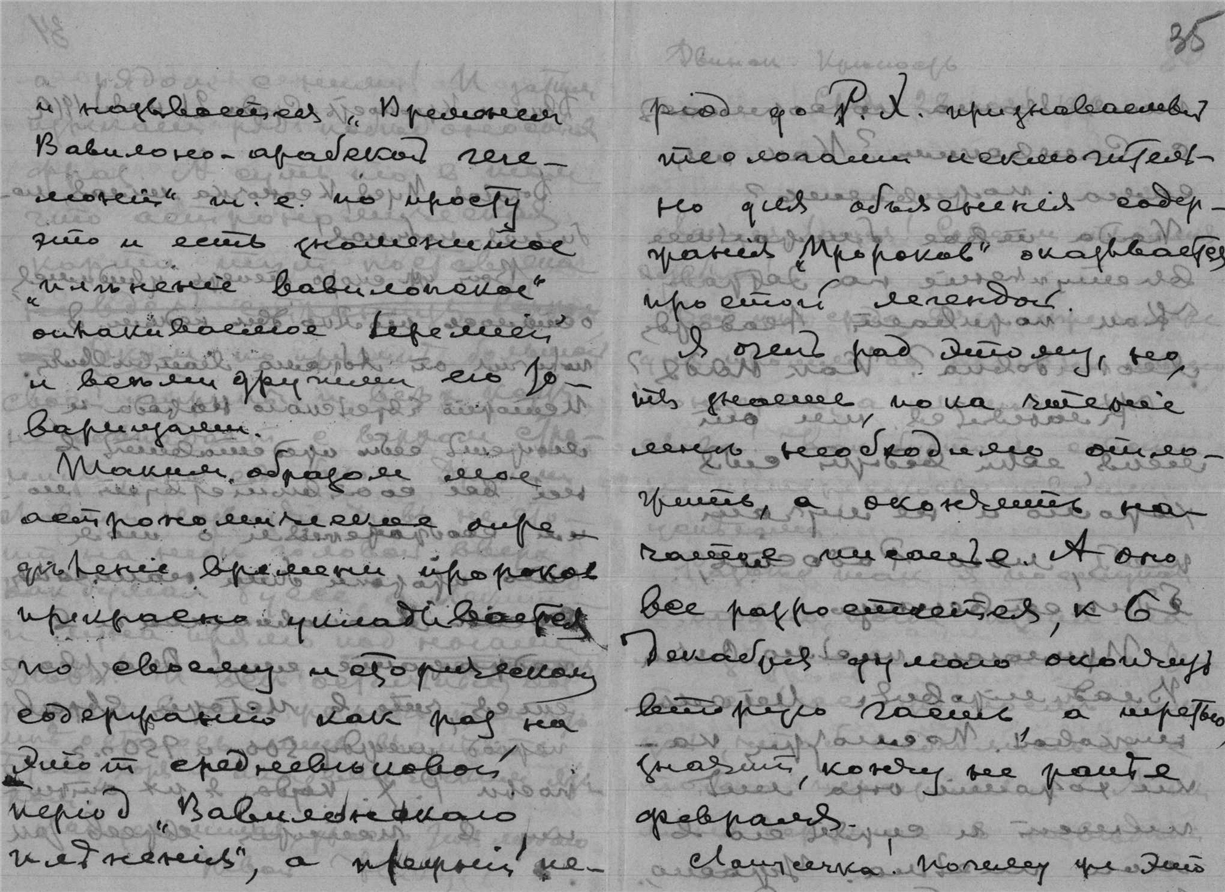 и называется „Временем
Вавилоно-арабской геге-
моніи“ т.е. по просту
это и есть знаменитое
„плѣненіе вавилонское“
оплакиваемое Іереміей
и всѣми другими его то-
варищами.
Таким образом мое
астрономическое опре-
дѣленіе времени пророков
прекрасно укладывается
по своему историческому
содержанію как раз на
этот средневѣковой
період „Вавилонскаго
плѣненія“, а прежній пе-
35
Двинск. Крѣпость
ріод до Р. Х. признаваемый
теологами исключитель-
но для объясненія содер-
жанія „Пророков“ оказывается
простой легендой.
Я очень рад этому, но,
ты знаешь, пока чтеніе
мнѣ необходимо отло-
жить, а окончить на-
чатое писанье. А оно
все разростается, к 6
Декабря думаю окончу
вторую часть, а третью,
значит, кончу не раньше
февраля.
Лапочка! почему же это